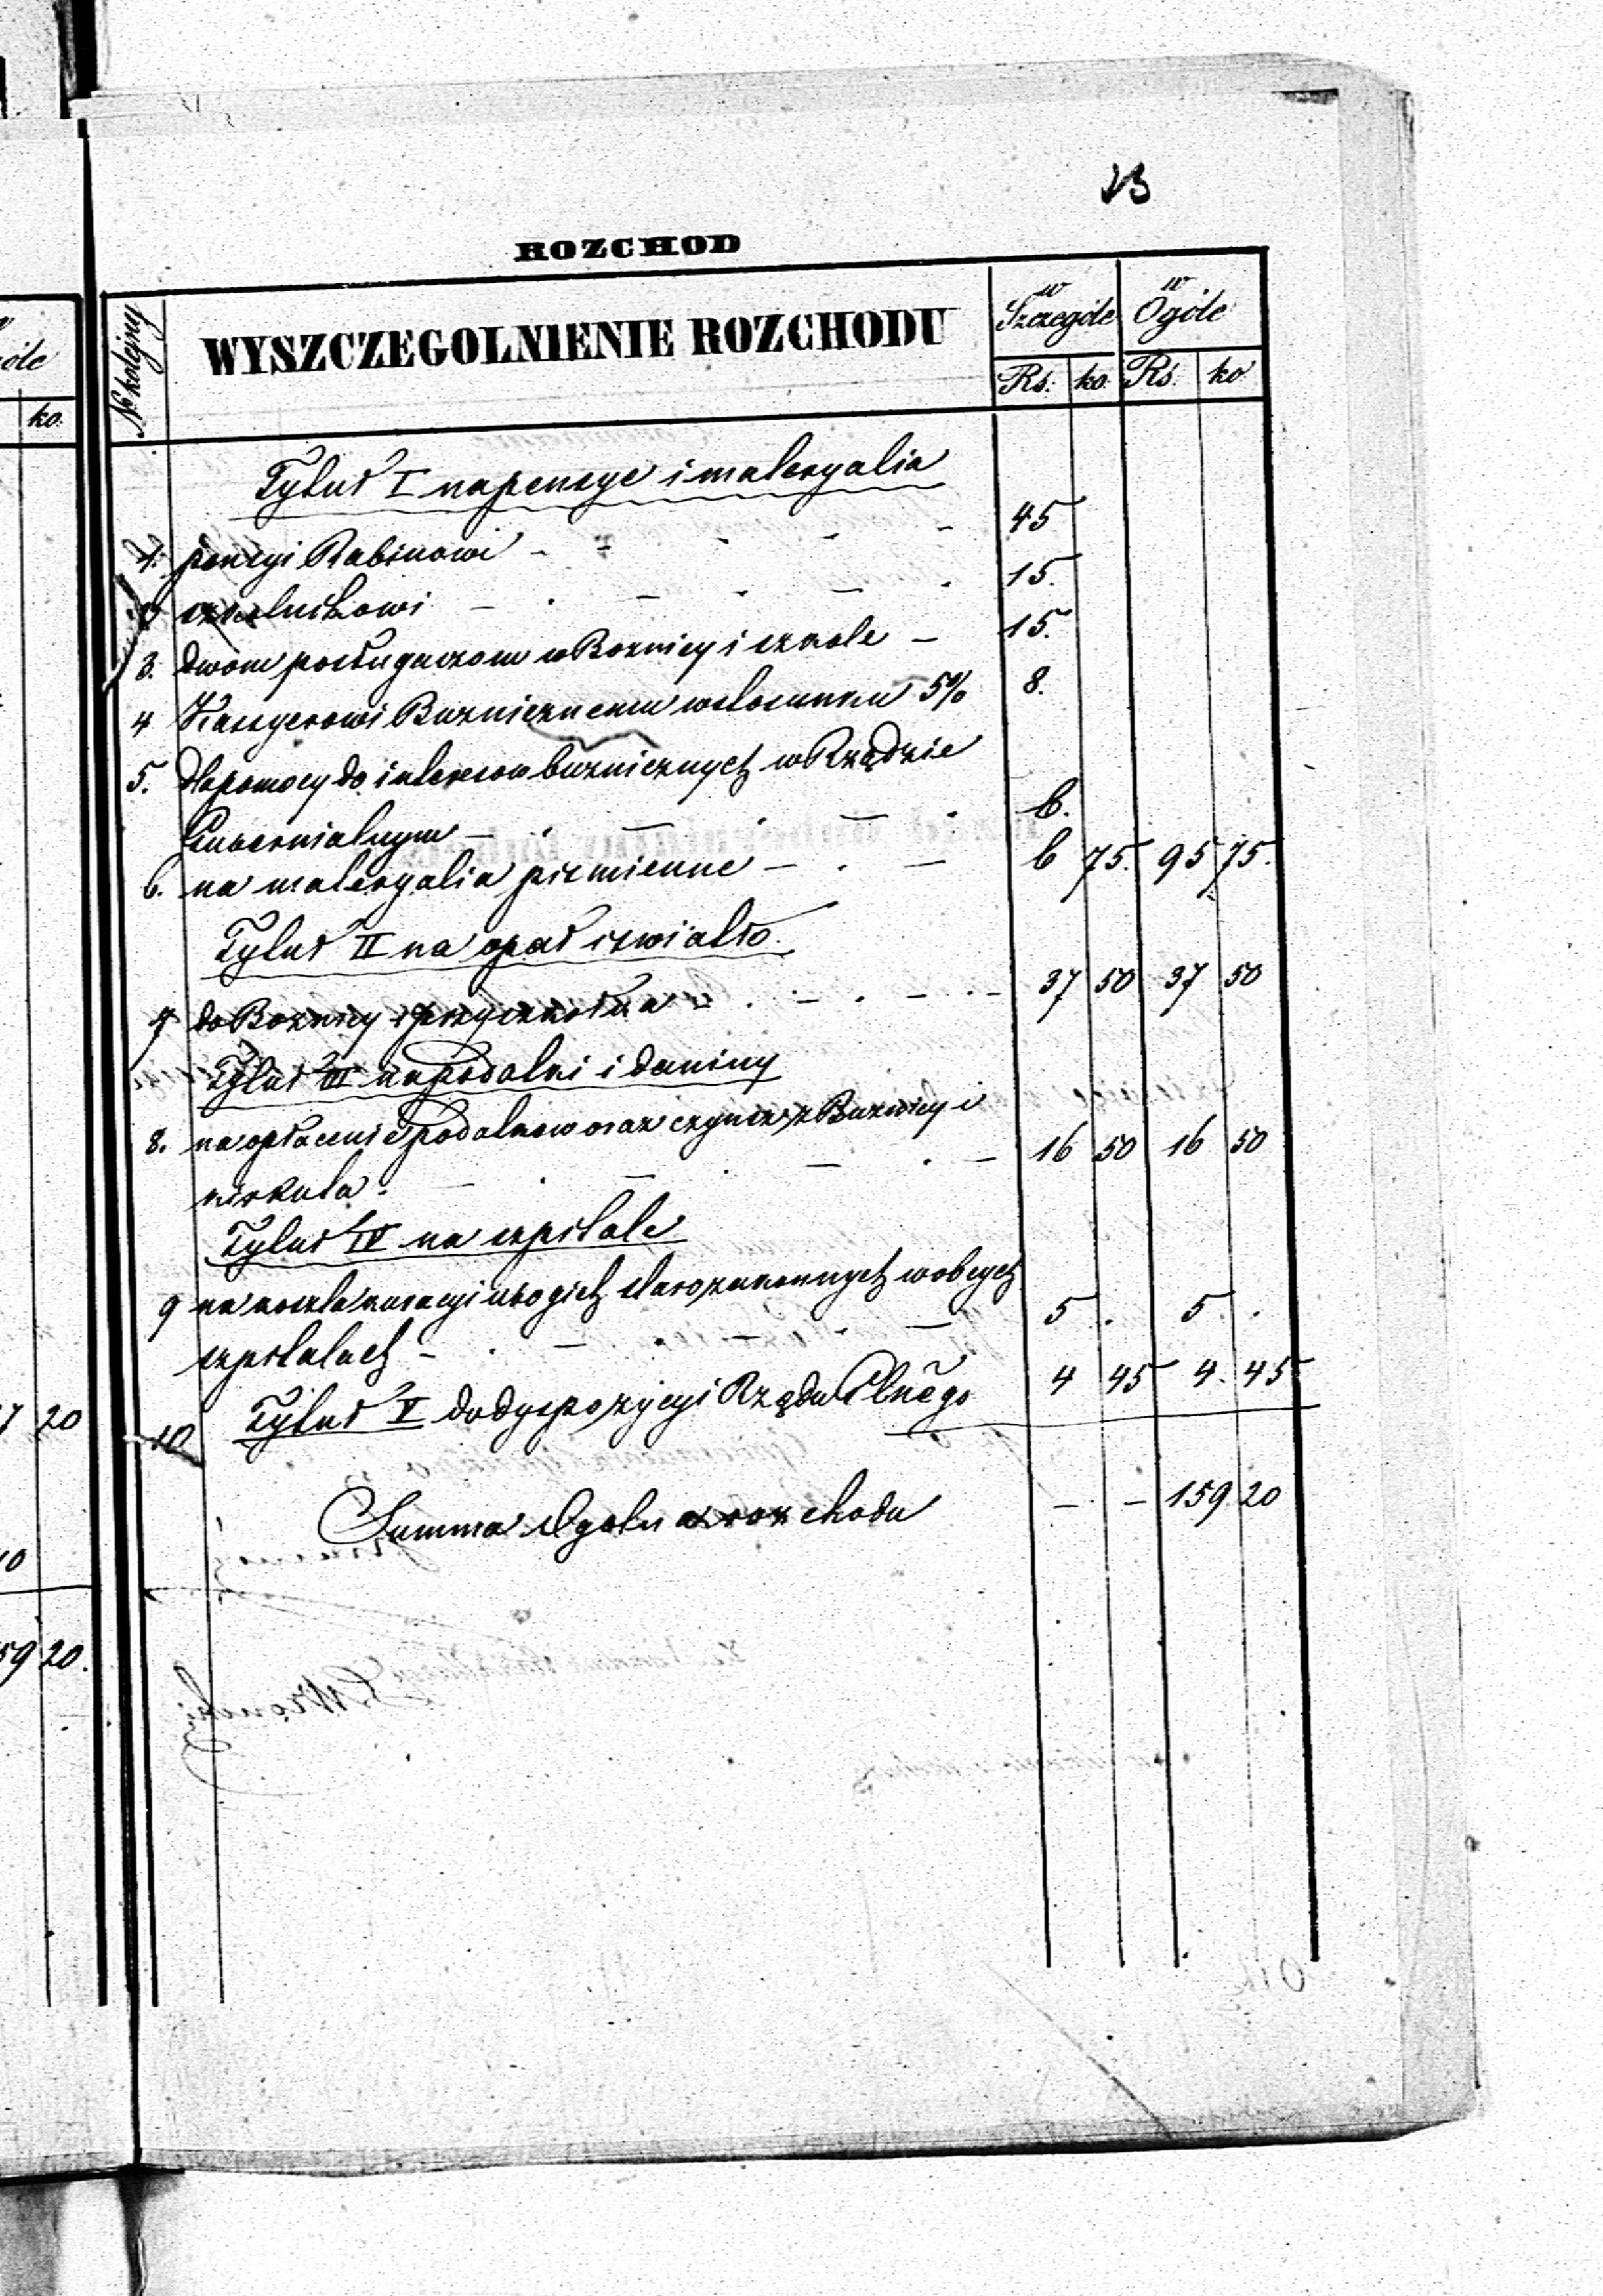 23
ROZCHOD
№ kolejny
WYSZCZEGOLNIENIE ROZCHODU
w Szczególe
w Ogóle
Rs. ko. Rs. ko.
Tytuł I na pensye i materyalia
1. pensyi Rabinowi - - - - 45
szkolnikowi - . - . - . 15.
3. dwom posługaczom w Boznicy i szkole - 15.
4 Kassyerowi Buznicznemu w stosunku 5% 8.
5. Dla pomocy do interesow buznicznych w Rządzie
Gubernialnym - . - . - . 6.
6. na materyalia pismienne - . - 6 75. 95 75.
Tytuł II na opał i swiatło.
7 do Boznicy i przy szkolna - . - . - . - 37 50 37 50
Tytuł III na podatki i daniny
8. na opłacenie podatkow oraz czynsz z Buznicy i
kirkuta - . - . - . - 16 50 16 50
Tytuł IV na szpitale
9 na koszta kuracyi ubogich starozakonnych w obcych
szpitalach - . - . - . - 5 . 5 .
10 Tytuł V do dyspozycyi Rządu Glnego 4 45 4. 45
Summa Ogolna rozchodu - - 159 20
óle
ko.
7 20
10
59 20.